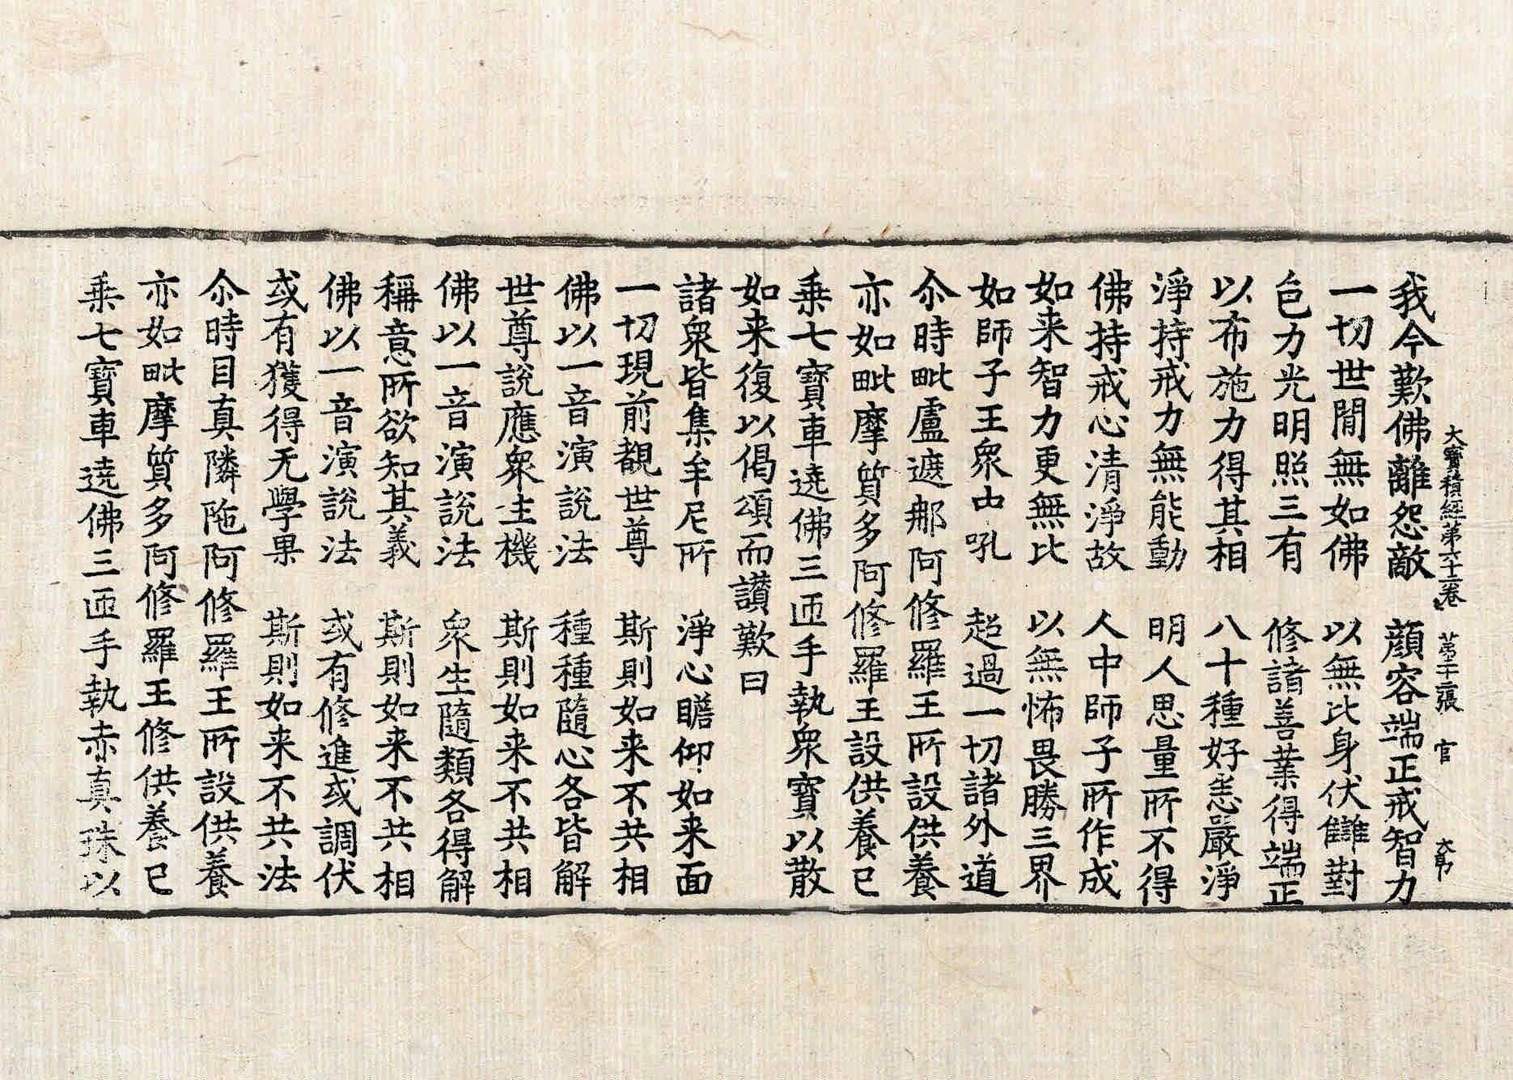 大寶積經第六十三卷 第二十三張 官 大郎
我今歎佛離怨敵 顏容端正戒智力
一切世閒無如佛 以無比身伏讎對
色力光明照三有 修諸善業得端正
以布施力得其相 八十種好悉嚴淨
淨持戒力無能動 明人思量所不得
佛持戒心清淨故 人中師子所作成
如来智力更無比 以無怖畏勝三界
如師子王衆中吼 超過一切諸外道
尒時毗盧遮那阿修羅王所設供養
亦如毗摩質多阿修羅王設供養已
乗七寶車遶佛三迊手執衆寶以散
如来復以偈頌而讃歎曰
諸衆皆集牟尼所 淨心瞻仰如来面
一切現前覩世尊 斯則如来不共相
佛以一音演說法 種種隨心各皆解
世尊說應衆生機 斯則如来不共相
佛以一音演說法 衆生隨類各得解
稱意所欲知其義 斯則如来不共相
佛以一音演說法 或有修進或調伏
或有獲得无學果 斯則如来不共法
尒時目真隣陁阿修羅王所設供養
亦如毗摩質多阿修羅王修供養已
乗七寶車遶佛三迊手執赤真珠以